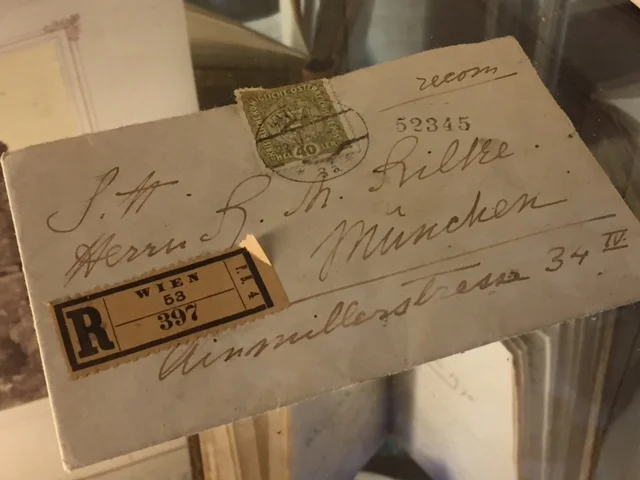 recom
52345
40
S. H.
Herrn R. M. Rilke.
München
Ainmillerstrasse 34 IV.
R
WIEN
53
397